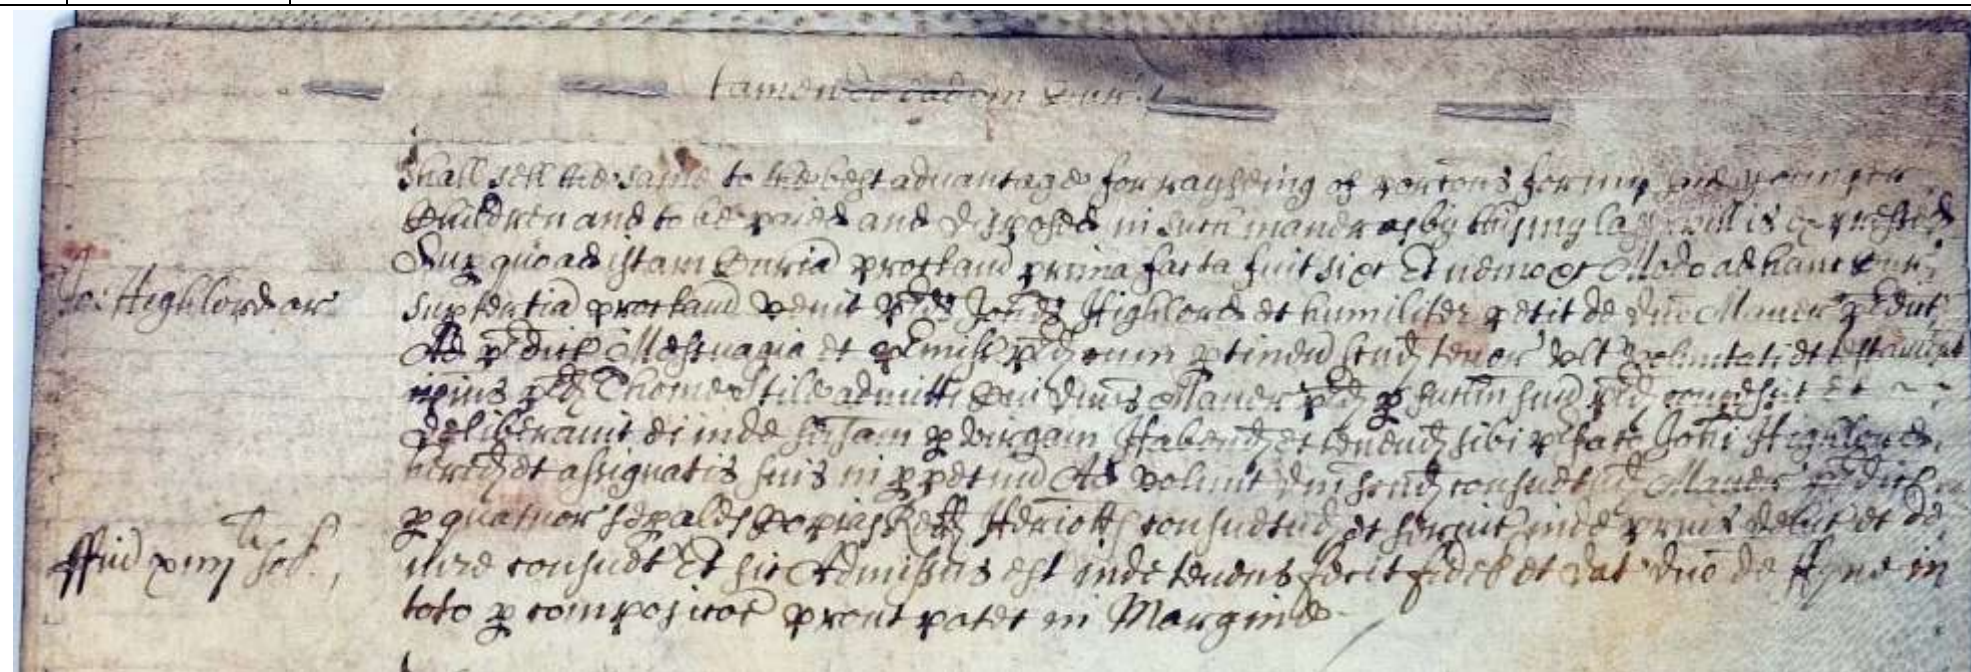 tamen
shall sell the same to the best advantage for raysheing of porcons for my said younger
Children and to be paied and disposed in such maner as by this my last will is expressed
Sup quo ad istam Curia proclam prima facta fuit sic et Et nemo Modo ad hanc Cur
Jo: Highlord ar
sup tertia proclam venit Highlord et humiliter petit de dno Maner predict
Ad predict Mesuagia et premiss cum ptineñ secund tenor voluntatis et testament
ipius Thome Stile admitti Qui dnus Maner p sen̄lm suu concessit Et
deliberavit ei inde seisinam p virgam Habend et tenend sibi prefat Johi Highlord
hered et assignatis suis in ppetuu Ad volunt dni secund consuetud Maner predict
p quatuor sepales Copias Redd Heriott consuetud et servic inde prius debit et de
ffiñ xiiij li sol.
iure consuet Et sic Admissus est inde tenens fecit fidel et dat dno de ffyne in
toto p composicoe prout patet in Margine